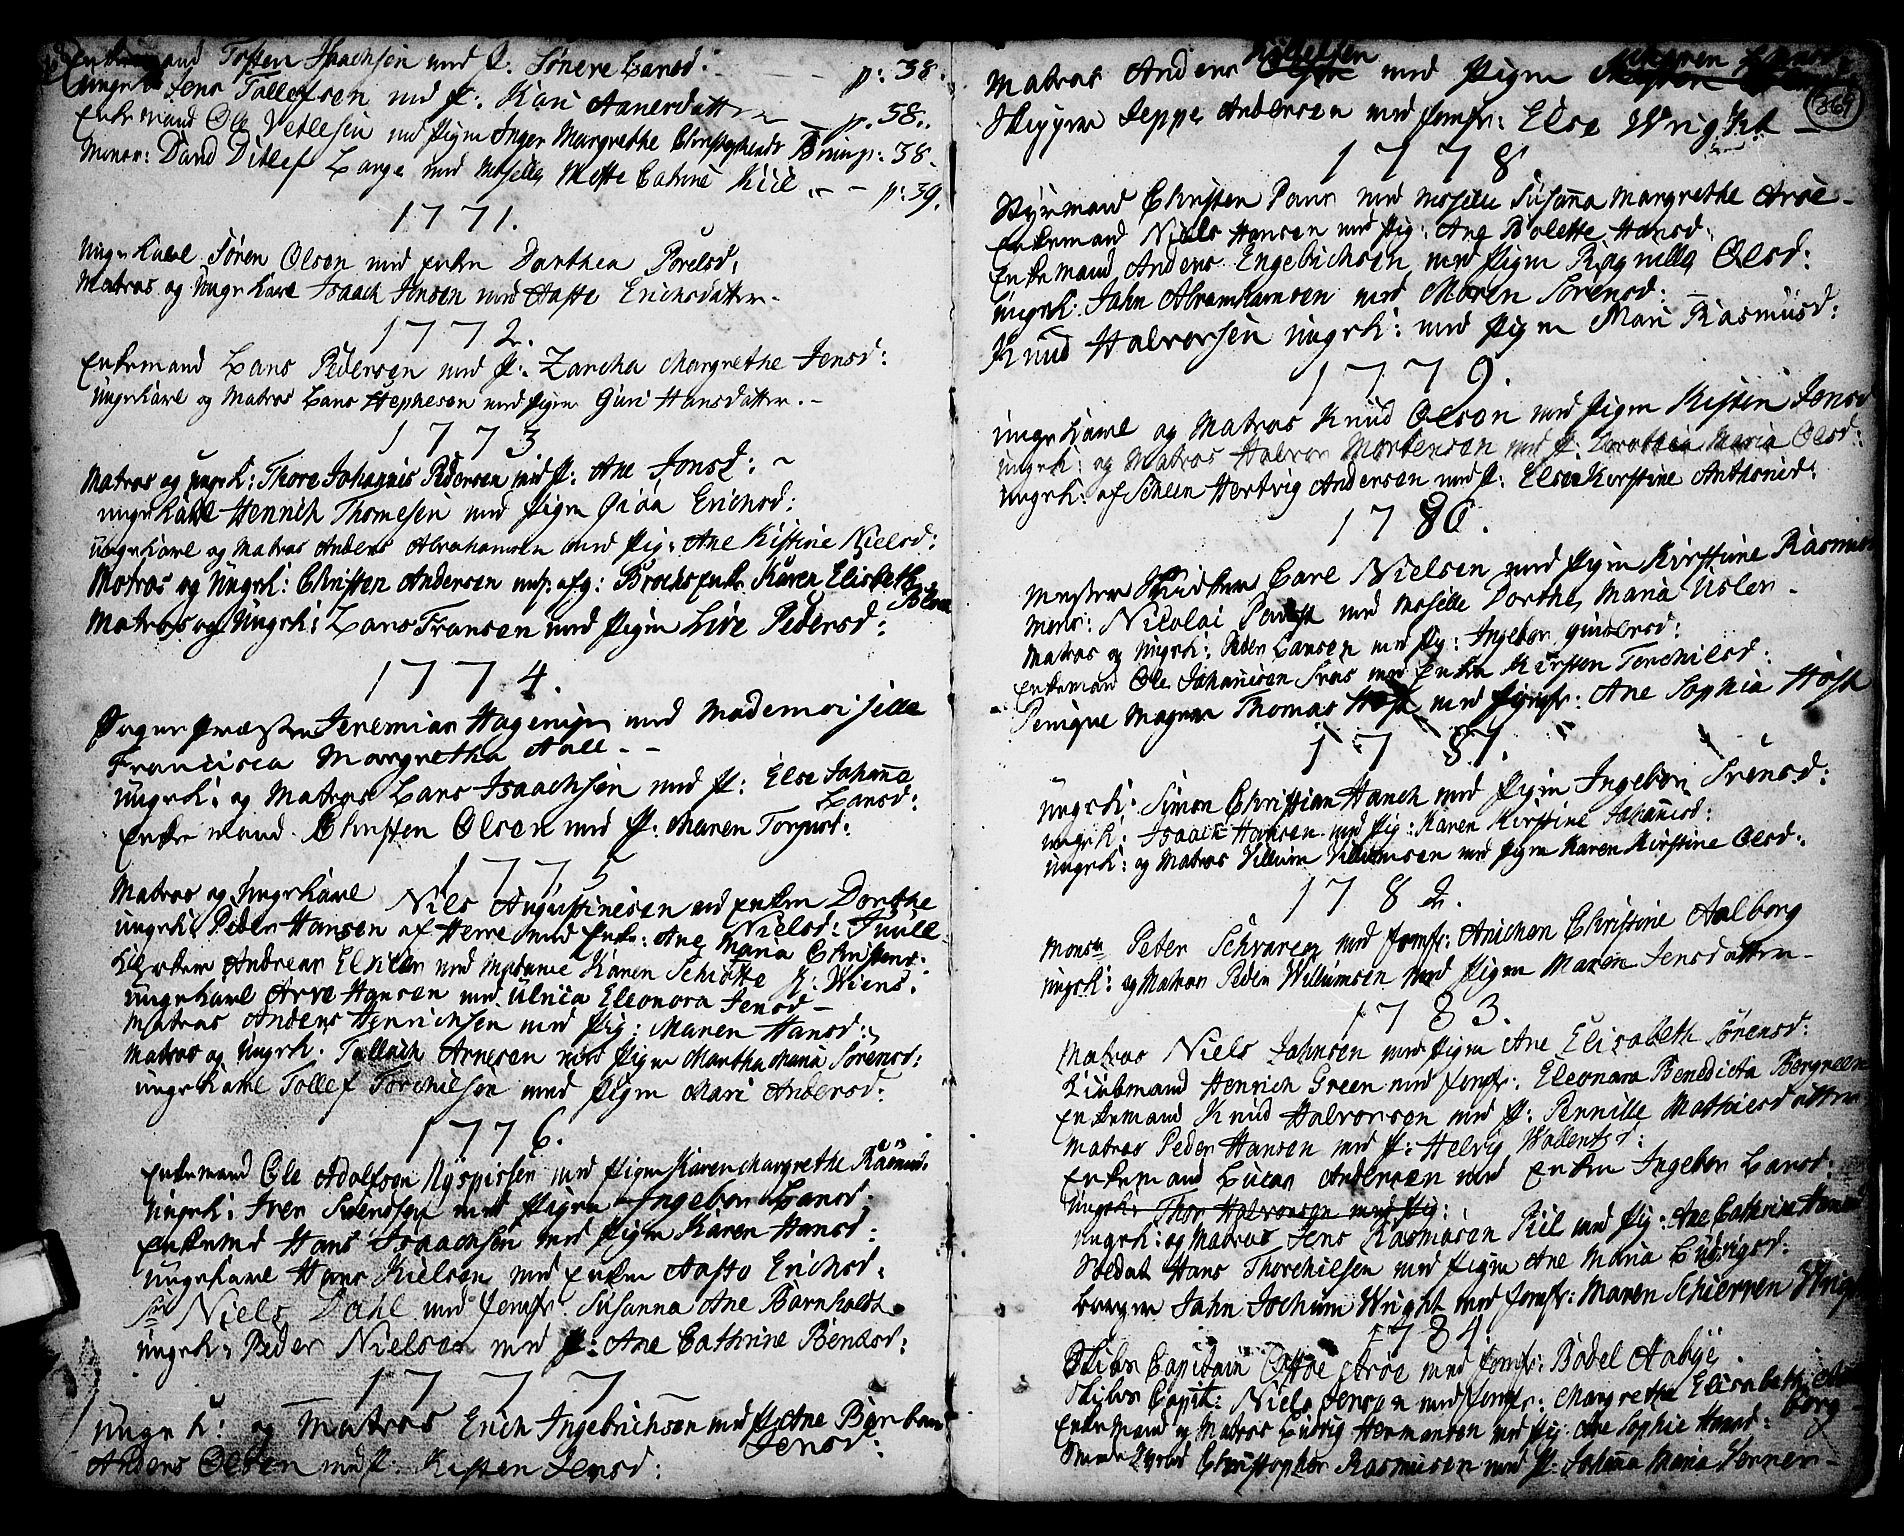 Enkemand Tosten Isachsen med P. Sønere Larsd: - - p: 38.
ungk: Jens Tollefsen med P: Kari Aanersdatter - p. 58.
Enkemand Ole Vetlesen med Pigen Inger Margrethe Christophersd: p: 38.
Monsr: David Ditlef Lange med Mselle Mette Catrine Kiil - - p: 39.
1771.
Ungekarl Søren Olsen med Enken Dorthea Povelsd:
Matros og Ungekarl Isaach Jensen med Aaste Erichsdatter -
1772.
Enkemand Lars Pedersen med P: Zareha Margrethe Jensd:
Ungekarl og Matros Lars Stephesen med Pigen Guri Hansdatter. -
1773
Matros og ungk: Thore Johannis Pedersen med P: Ane Jonsd: -
ungekarl Henrich Thomesen med Pigen Erichsd:
ungekarl og Matros Anders Abrahamsen med Pig: Ane Kistine Nielsd:
Matros og Ungk: Christen Andersen med Karen Elisbeth
Matros og Ungk: Lars Fransen med Pigen Live Pedersd:
1774.
Præsten Jeremias Hagerup med Mademoiselle
Francisca Margretha Aall - -
ungk: og Matros Lars Isaachsen med P: Else Johanna
Larsd:
Enkemand Christen Olsen med P: Maren Torgusd:
1775
Matros og Ungekarl Niels Augustinesen med Enken Dorthe
Nielsd: Juull
ungk: Peder Hansen af Herre med Enke: Ane Maria Christensd:
Andreas med Madame Karen Schiøtte Wiens.
ungekarl Arve Hansen med Ulrica Eleonora Jensd -
Matros Anders Henrichsen med Pig: Maren Hansd:
Matros og Ungk. Tallach Arnesen med Pigen Martha Maria Sørensd:
ungekarl Tollef Torchilsen med Pigen Mari Andersd:
1776.
Enkemand Ole Adolfson med Pigen Karen Margrethe Rasmusd.
Ungk: Iver Svendsen med Pigen Ingebor Larsd:
Enkemd Hans Isaachsen med Pigen Karen Hansd:
ungekarl Hans Kielsen med Enken Aasto Erichsd:
Sr Niels Dahl med Jomfr Susanna Ane Barnholdt
ungk: Peder Nielsen med P: Ane Cathrine Bendsd:
1777
Ungk: og Matros Erich Ingebrichsen med P. Ane Barbara
Jensd:
Anders Olsen med P: Kisten Jensd:
Matros Anders med Pigen Maren
369
Skipper Jeppe Andersen med Jomfr: Else Wright -
1778
Styrmand Christen Paus med Mselle Susanna Margrethe Aröe -
Enkemand Niels Hansen med Pig: Ane Bolette Hansd:
Enkemand Anders Engebrichsen med Pigen Ragnille Olsd:
Ungk: Jahn Abrahamsen med Maren Sørensd:
Knud Halvorsen ungk: med Pigen Mari Rasmusd:
1779.
ungekarl og Matros Knud Olsen med Pigen Kisten Jensd
ungk: og Matros Halvor Mortensen med P: Dorothea Maria Olsd:
ungk: af Scheen Hertvig Andersen med P: Else Kirstine Anthonisd:
1780.
Mester Carl Nielsen med Pigen Kirstiine Rasmus
Monsr: Nicolai med Mselle Dorthe Maria Usler -
Matros og Ungk: Peder Larsen med Pig: Ingebor
Enkemand Ole Johannisen med Enken Kirsten Torchilsd:
Thomas Høst med Jomfr: Ane Sophia Høst
1781.
ungk: Simon Christian Hauch med Pigen Ingebor Sørensd:
ungk: Isaack Hansen med Pig: Karen Kirstine Johannisd:
ungk: og Matros Villum Villumsen med Pigen Karen Kirstine Olsd:
1782.
Monsr Peter Schvartz med Jomfr: Anichen Christine Aalborg
ungk: og Matros Peder Willumsen med Pigen Maren Jensdatter -
1783.
Matros Niels Jahnsen med Pigen Ane Elisabeth Sørensd:
Kiøbmand Henrich Green med Jomfr: Eleonara Benedicta Borgreen
Enkemand Knud Halvorsen med P: Pernille Mathisdatter
Matros Peder Hansen med P: Helvig Wallentsd:
Enkemand Lucas Andersen med Enken Ingebor Larsd:
Ungk: Thor Halvorsen med Pig:
Ungk: og Matros Jens Rasmusen Piil med Pig: Ane Cathrine Hansd
Soldat Hans Thorchilsen med Pigen Ane Maria Ludvigsd:
Borger Jahn Jochum Wright med Jomfr: Maren Schierven Wright
1784.
Skibs Capitain Aröe med Jomfr: Bodel Aabye
Skibs Capit: Niels Jensen med Jomfr: Margrethe Elisabeth
borg -
Enkemand og Matros Ludvig Hermansen med Pig: Ane Sophie Hansd:
Christopher Rasmusen med P: Johanna Maria